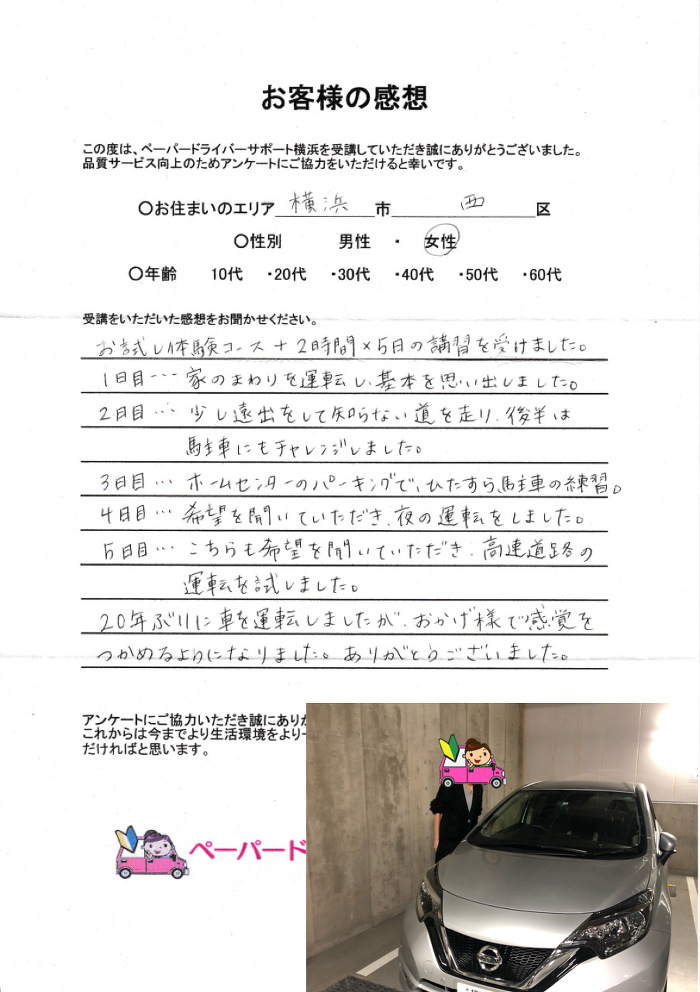 お客様の感想
この度は、ペーパードライバーサポート横浜を受講していただき誠にありがとうございました。
品質サービス向上のためアンケートにご協力をいただけると幸いです。
〇お住まいのエリア 横浜 市 西 区
〇性別 男性 ・ 女性
〇年齢 10代 ・20代 ・30代 ・40代 ・50代 ・60代
受講をいただいた感想をお聞かせください。
お試し体験コース + 2時間×5日の講習を受けました。
1日目… 家のまわりを運転し、基本を思い出しました。
2日目… 少し遠出をして知らない道を走り、後半は
駐車にもチャレンジしました。
3日目… ホームセンターのパーキングで、ひたすら駐車の練習。
4日目… 希望を聞いていただき、夜の運転をしました。
5日目… こちらも希望を聞いていただき、高速道路の
運転を試しました。
20年ぶりに車を運転しましたが、おかげ様で感覚を
つかめるようになりました。ありがとうございました。
アンケートにご協力いただき誠にありが
これからは今までより生活環境をより一
だければと思います。
ペーパード
NISSAN